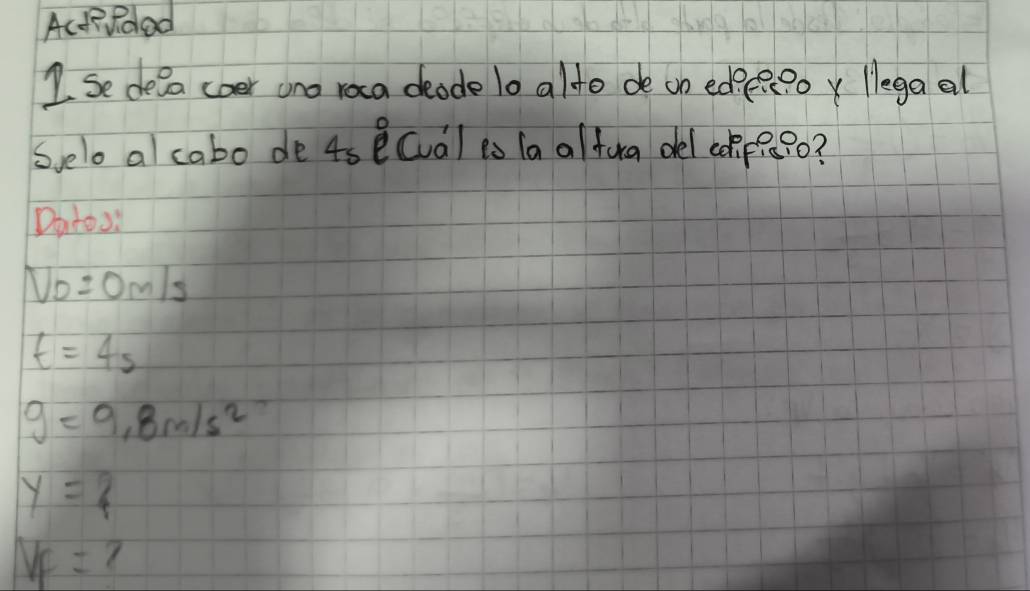 Actividad
1 Se deja caer una roca desde lo alto de un edificio y llega al
suelo al cabo de 4s ¿Cuál es la altura del edificio?
Datos:
Vo = 0m/s
t = 4s
g = 9,8m/s²
y = ?
Vf = ?